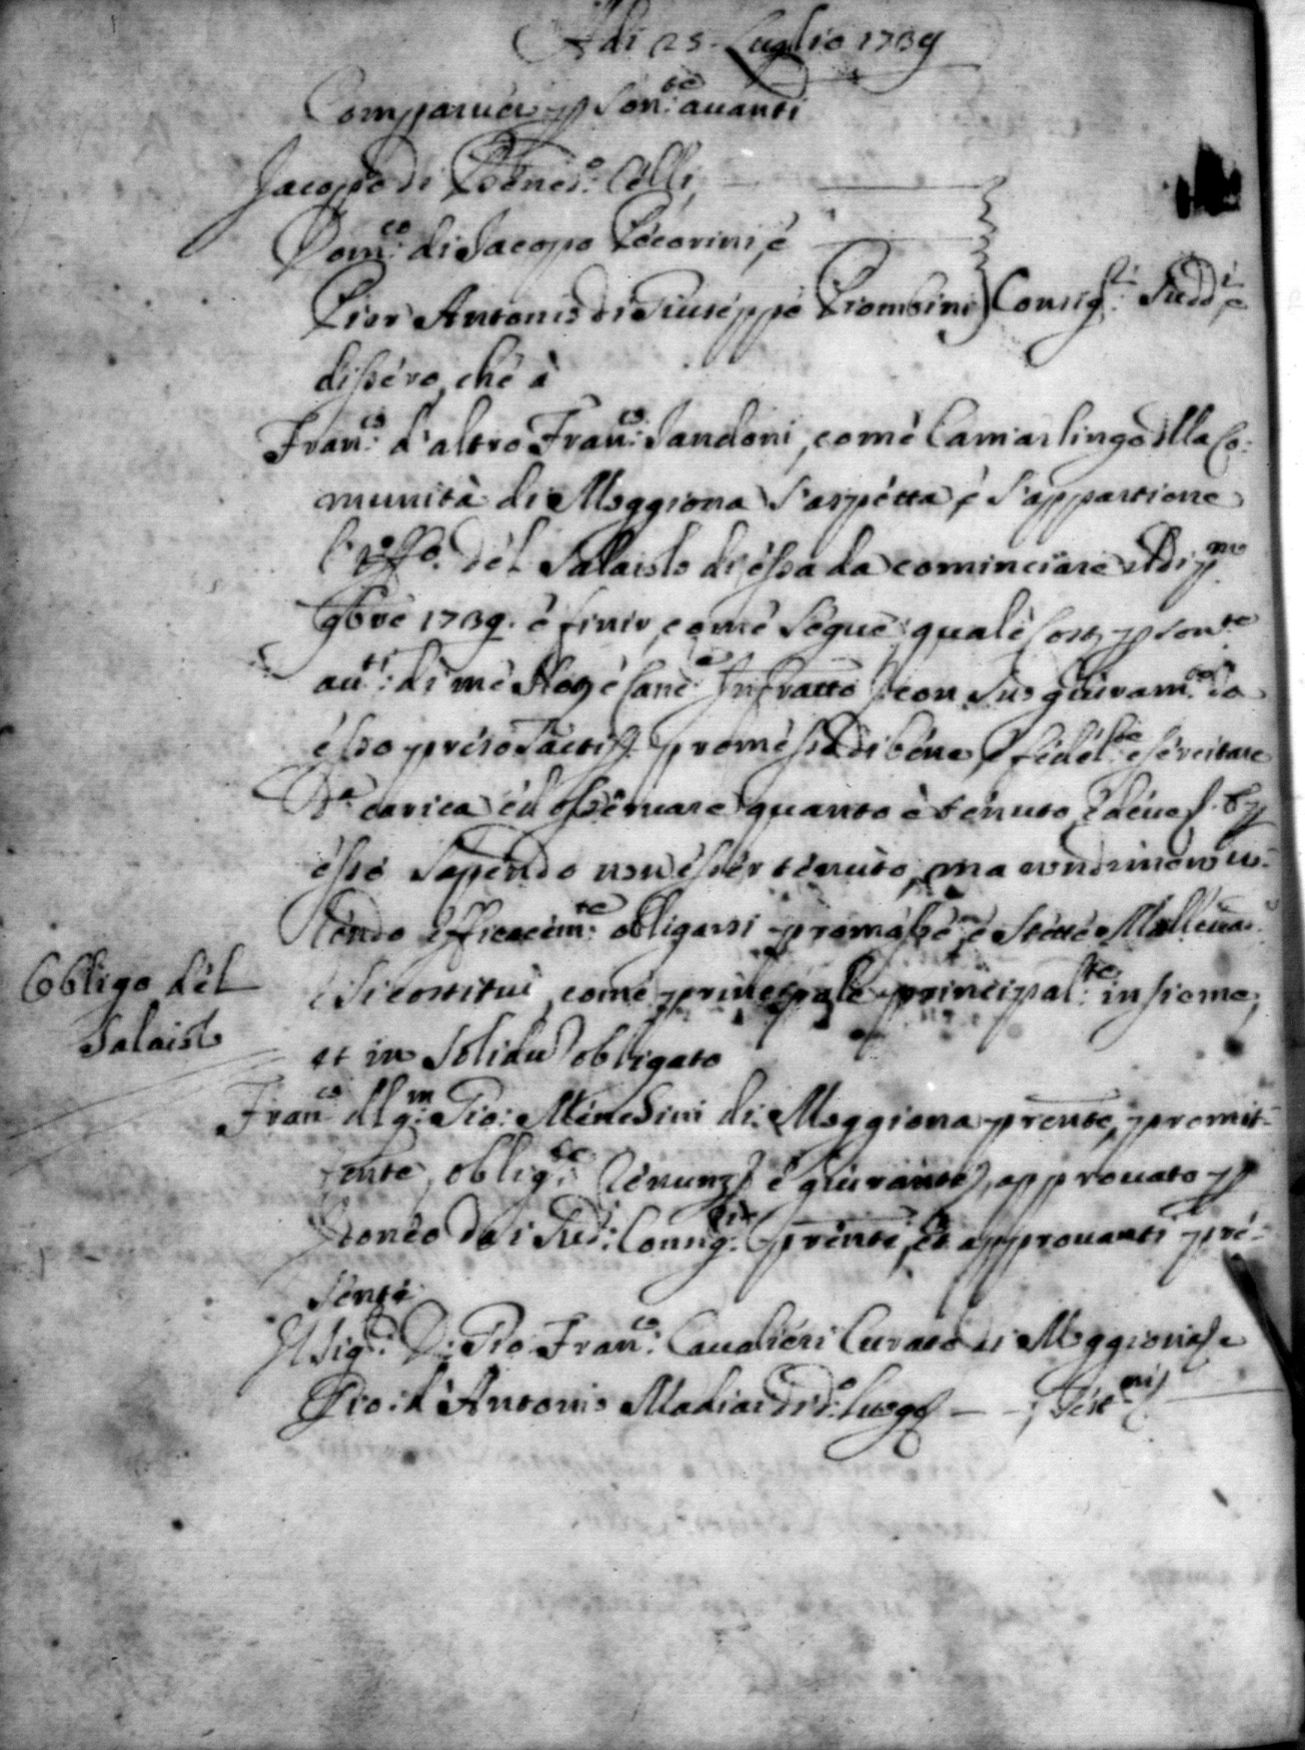 Adi 25. Luglio 1739
Comparuero p son:te auanti
Jacopo di Bened:o Celli
Dom:co di Jacopo Pecorini, e
Pier Antonio di Giuseppe Piombini Consig:ri Sudd:i e
dissero, che à
Fran:co d'altro Fran:co Sandoni, come Camarlingo della Co-
munità di Moggiona s'aspetta, e s'appartiene
l'Off:o del Salaiolo di essa da cominciare Adi p:mo
9bre 1739. e finir, come segue, quale p son:te
au:ti di me Not:e Canc:e Infratto con suo giuram:to
esso preso tactis promesse di bene, e fidel:te esercitare
D:a carica, ed osseruare quanto è tenuto, e deue
esso sapendo non esser tenuto, ma nondimeno uo-
lendo efficacem:te obligarsi promesse, e stette Malleua:
e si costituì, come principale principal:te insieme,
et in solidu obligato
Obligo del
Salaiolo
Fran:co del q:m Gio: Menesini di Moggiona prente, promit-
tente, oblig:te renunz: e giurante, approuato p
Idoneo da i Sud:i Consig:ri prenti, et approuanti pre-
senti
Il Sig:r D: Gio Fran:co Caualieri Curato di Moggiona, e
Gio: d'Antonio Madiai di d:o luogo — — Test:nij